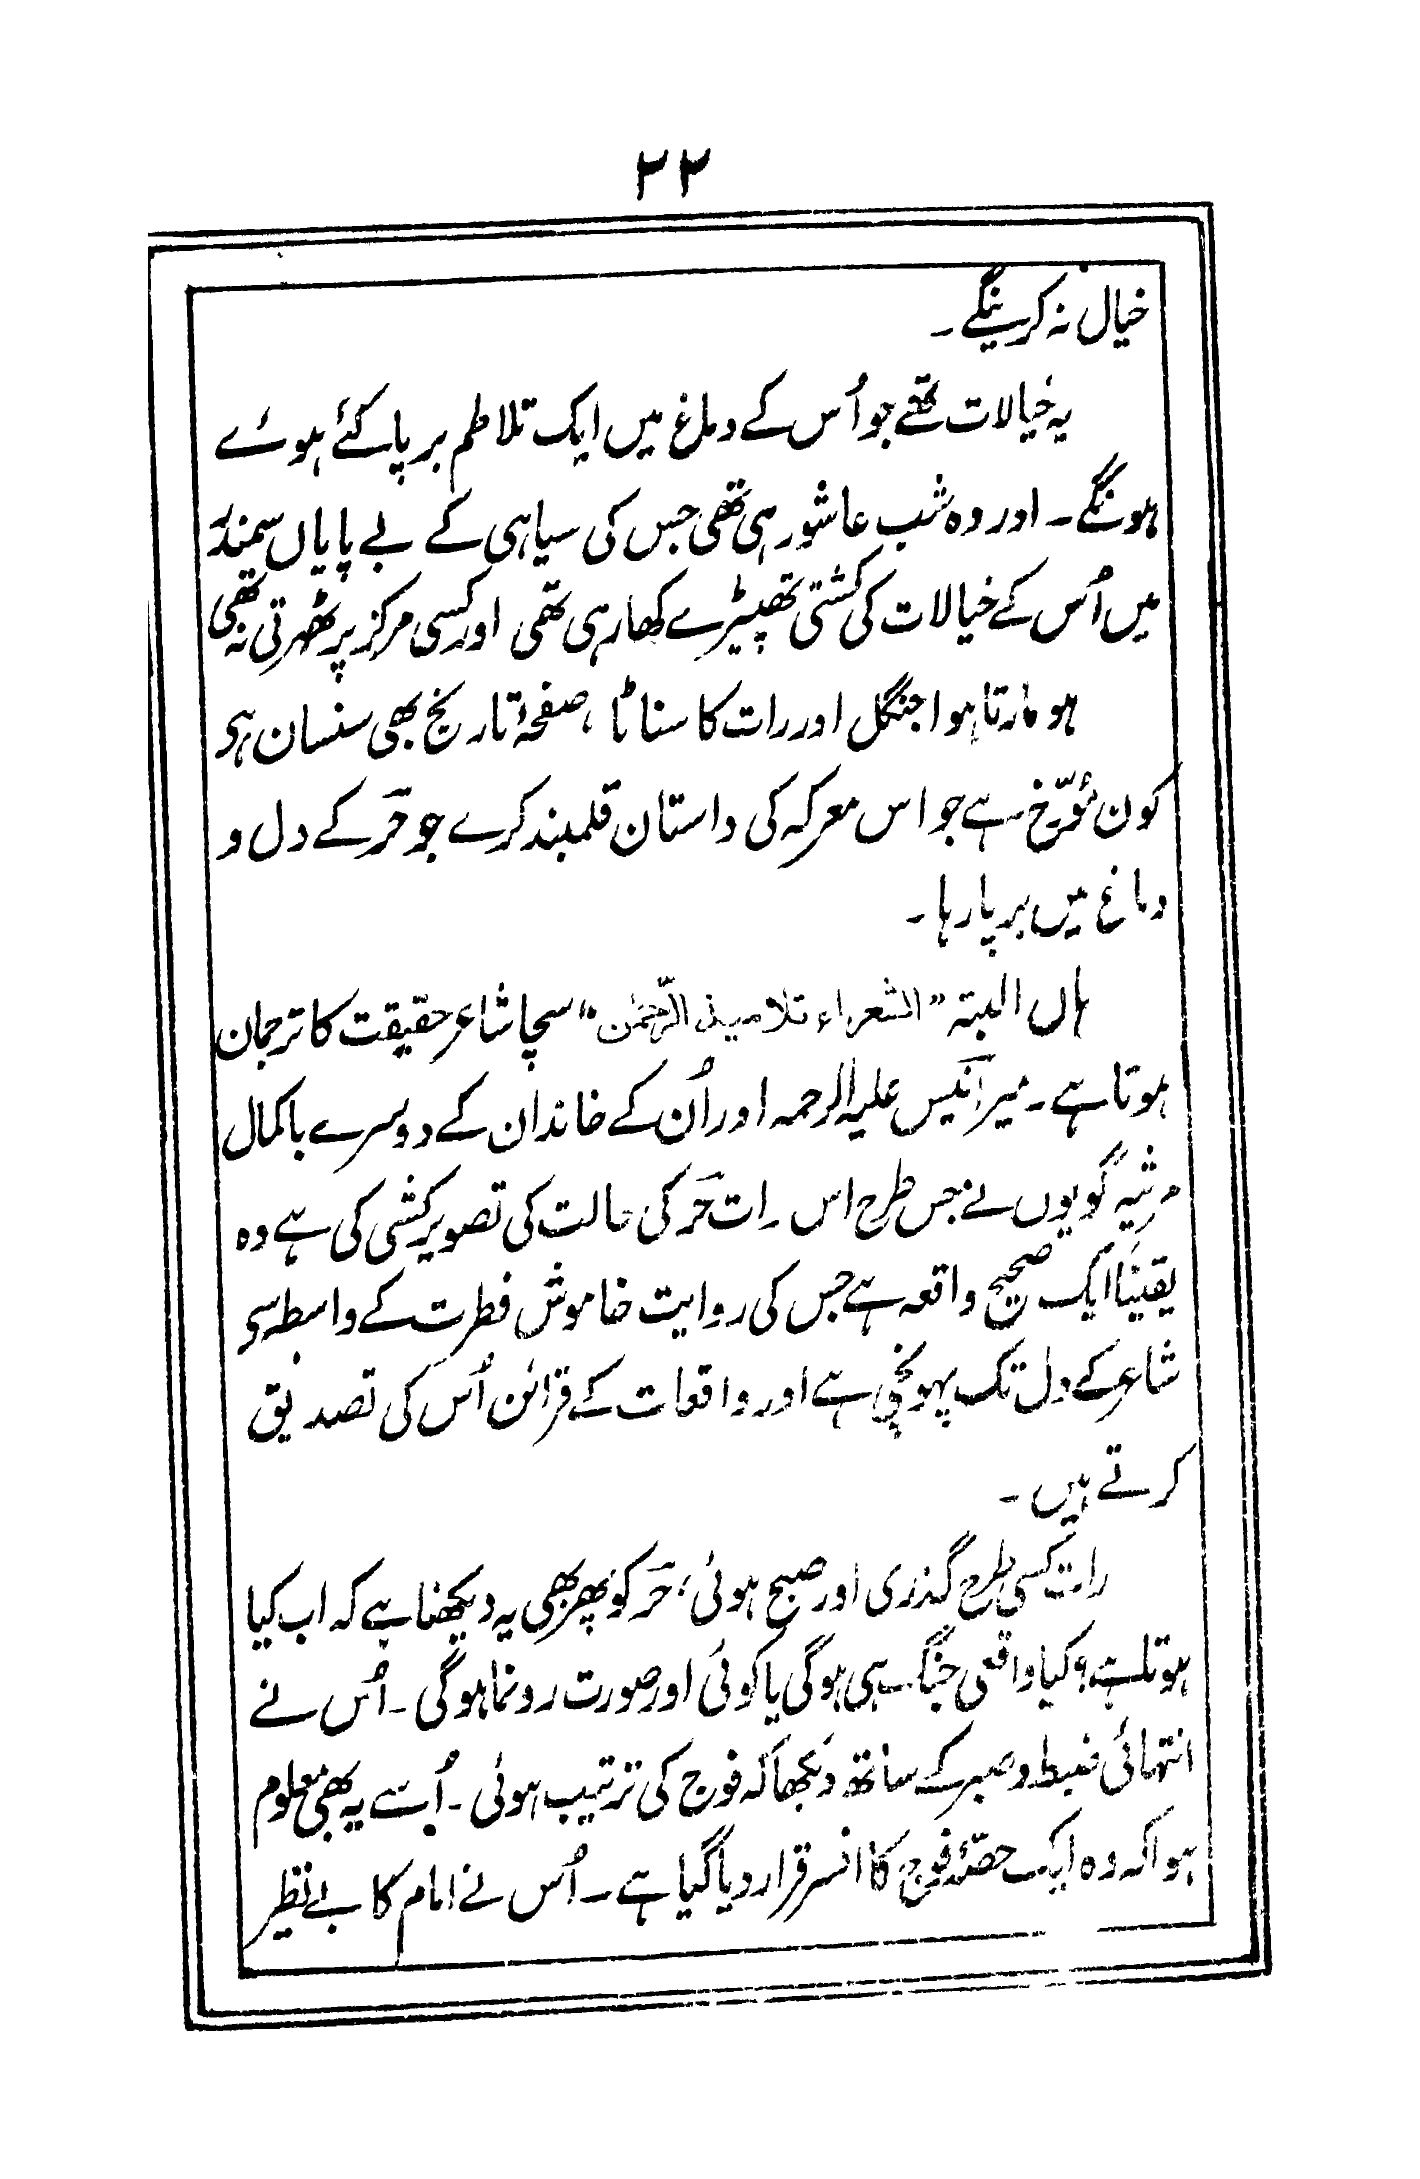 ۲۲
خیال نہ کرینگے۔
یہ خیالات تھے جو اُس کے دماغ میں ایک تلاطم برپا کئے ہوئے
ہونگے۔ اور وہ شب عاشور ہی تھی جس کی سیاہی کے بے پایاں سمندر
میں اُس کے خیالات کی کشتی تھپیڑے کھا رہی تھی اور کسی مرکز پر ٹھہرتی نہ تھی
ہو مارتا ہوا جنگل اور رات کا سناٹا، صفحۂ تاریخ بھی سنسان ہی
کون مؤرّخ ہے جو اس معرکہ کی داستان قلمبند کرے جو حر کے دل و
دماغ میں برپا رہا۔
ہاں البتہ ”الشعراء تلامیذ الرّحمٰن“ سچا شاعر حقیقت کا ترجمان
ہوتا ہے۔ میر انیس علیہ الرحمہ اور اُن کے خاندان کے دوسرے باکمال
مرثیہ گویوں نے جس طرح اس رات حر کی حالت کی تصویر کشی کی ہے وہ
یقیناً ایک صحیح واقعہ ہے جس کی روایت خاموش فطرت کے واسطہ سی
شاعر کے دل تک پہونچی ہے اور واقعات کے قرائن اُس کی تصدیق
کرتے ہیں۔
رات کسی طرح گذری اور صبح ہوئی؛ حر کو پھر بھی یہ دیکھنا ہے کہ اب کیا
ہوتا ہے؟ کیا واقعی جنگ ہی ہوگی یا کوئی اور صورت رونما ہوگی۔ اُس نے
انتہائی ضبط و صبر کے ساتھ دیکھا کہ فوج کی ترتیب ہوئی۔ اُسے یہ بھی معلوم
ہوا کہ وہ ایک حصّۂ فوج کا افسر قرار دیا گیا ہے۔ اُس نے امام کا بے نظیر